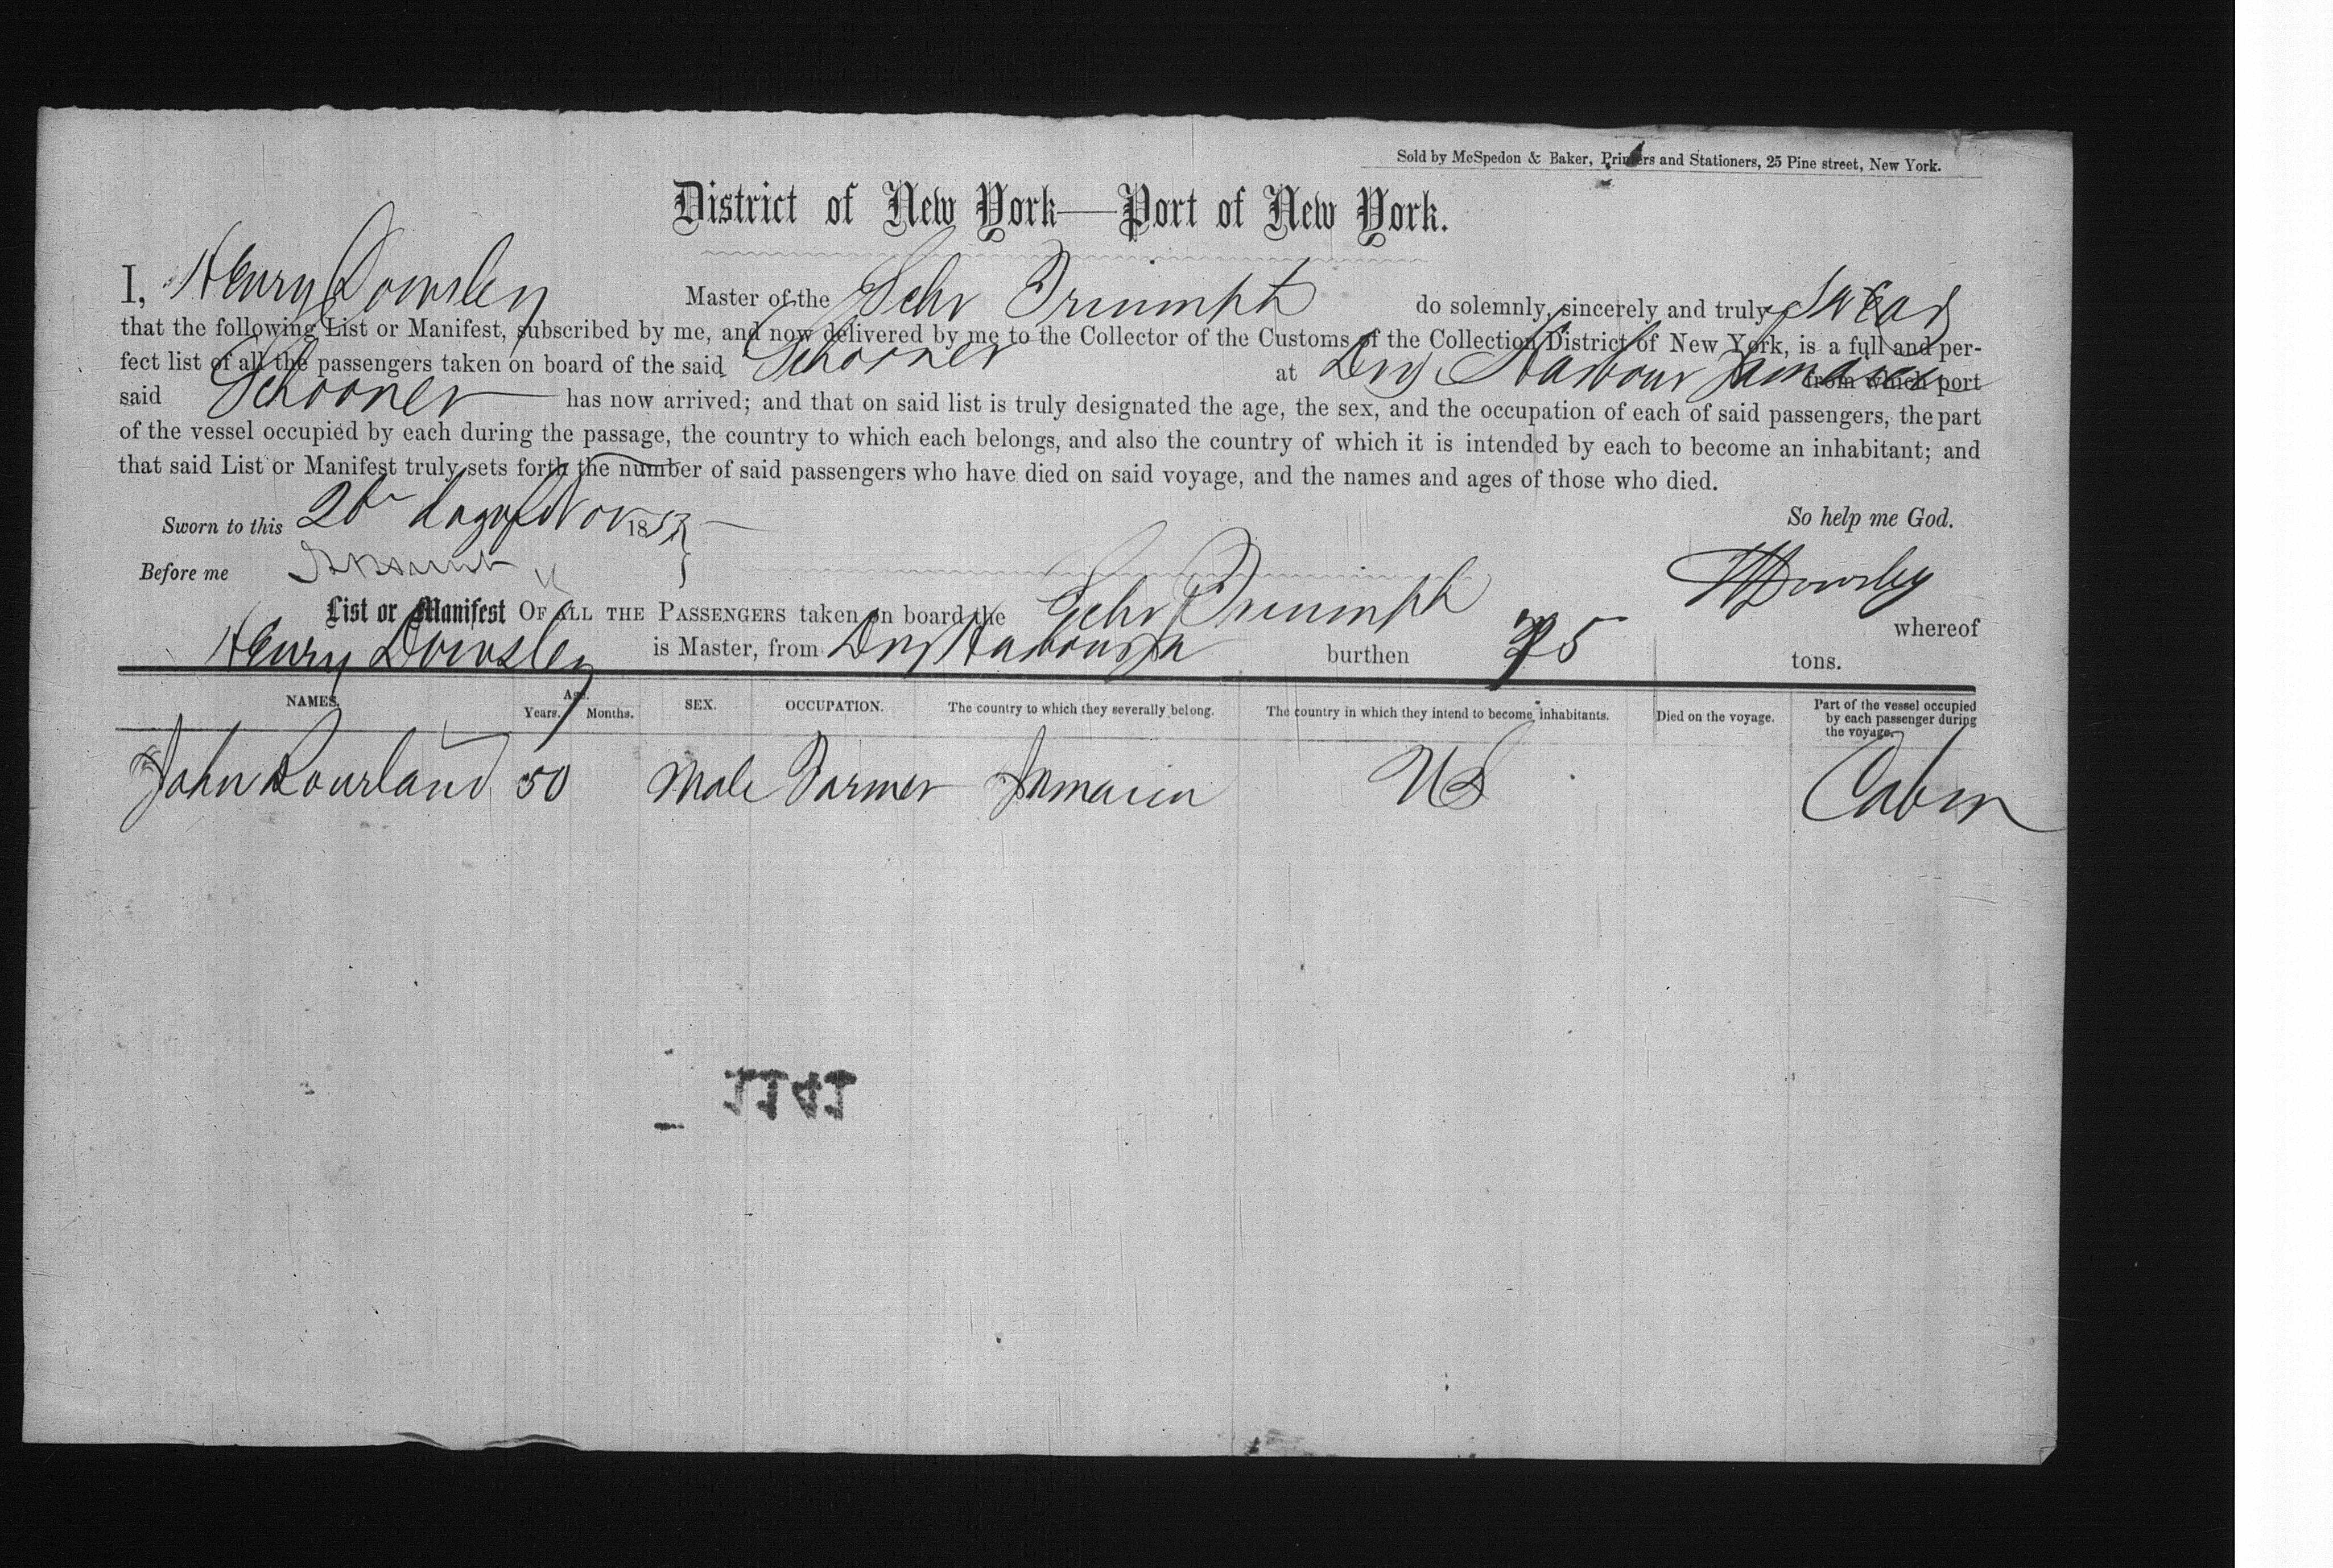 Sold by McSpedon & Baker, Printers and Stationers, 25 Pine street, New York.
District of New York—Port of New York.
I, Henry Dowsley Master of the Schr Triumph do solemnly, sincerely and truly Swear
that the following List or Manifest, subscribed by me, and now delivered by me to the Collector of the Customs of the Collection District of New York, is a full and per-
fect list of all the passengers taken on board of the said Schooner at Dry Harbour Jamaica from which port
said Schooner has now arrived; and that on said list is truly designated the age, the sex, and the occupation of each of said passengers, the part
of the vessel occupied by each during the passage, the country to which each belongs, and also the country of which it is intended by each to become an inhabitant; and
that said List or Manifest truly sets forth the number of said passengers who have died on said voyage, and the names and ages of those who died.
Sworn to this day of Nov 185 So help me God.
Before me H Dowsley
List or Manifest OF ALL THE PASSENGERS taken on board the Schr Triumph whereof
Henry Dowsley is Master, from Dry Harbour Ja burthen tons.
NAMES. Age. Years. Months. SEX. OCCUPATION. The country to which they severally belong. The country in which they intend to become inhabitants. Died on the voyage. Part of the vessel occupied by each passenger during the voyage.
John Rourland 50 Male Farmer Jamaica US Cabin
1141